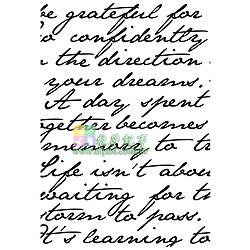 be grateful for
to confidently
n the direction
your dreams.
A day spent
together becomes
memory to tr
Life isn't abou
waiting for th
storm to pass.
It's learning to